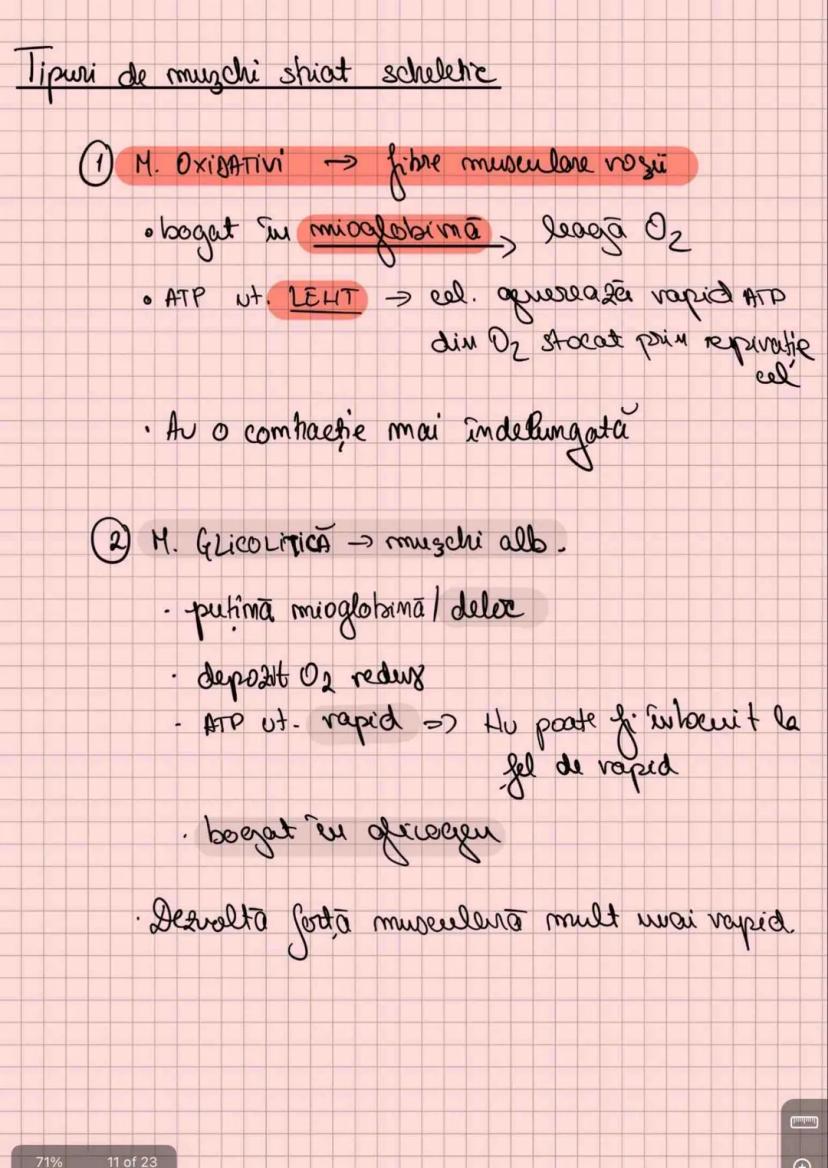 Tipuri de muzchi striat scheletic
① M. OXIDATIVI → fibre musculare rozii
• bogat în mioglobină → leagă O2
• ATP ut. LENT → cel. generează rapid ATP
din O2 stocat prin repirație
cel
• Au o contracție mai îndelungată
② M. GLICOLITICĂ → muzchi alb.
• puțină mioglobină / deloc
• depozit O2 redus
- ATP ut. rapid => Nu poate fi înlocuit la
fel de rapid
• bogat în glicogen
• Dezvoltă forță musculară mult mai rapid.
71% 11 of 23